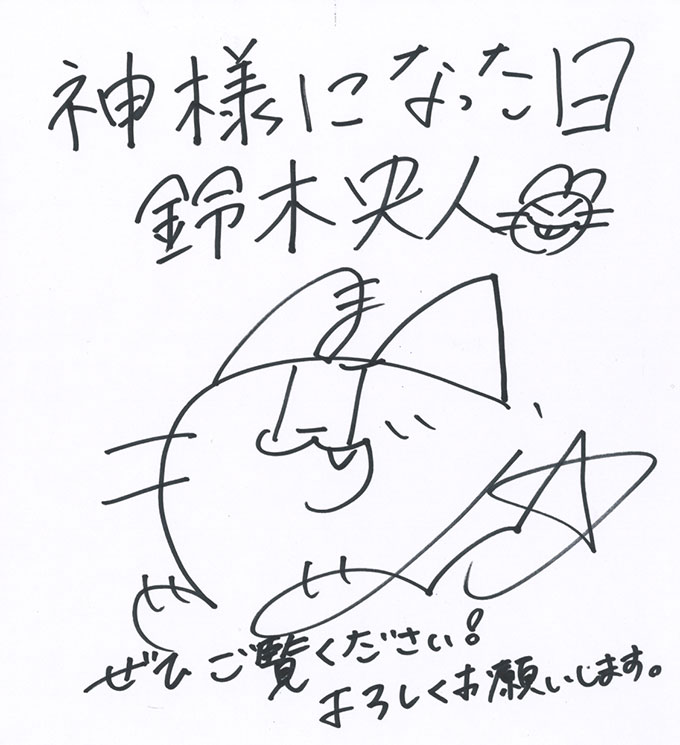 神様になった日
鈴木央人
ぜひご覧ください！
よろしくお願いします。